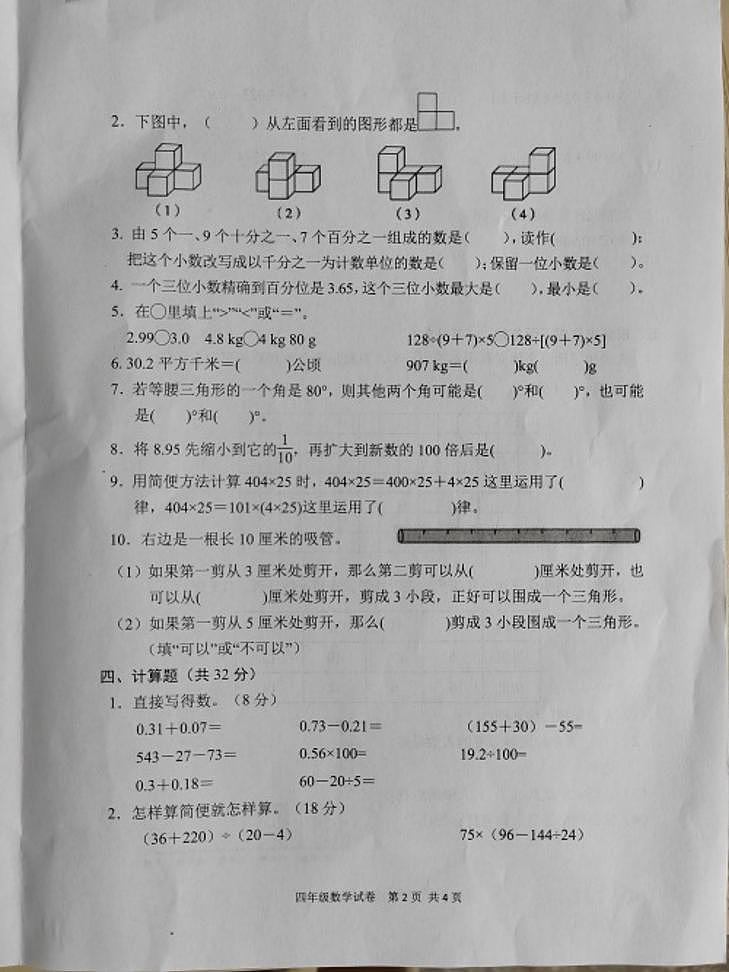 2. 下图中，（ ）从左面看到的图形都是 。
（1） （2） （3） （4）
3. 由 5 个一、9 个十分之一、7 个百分之一组成的数是( )，读作( )；
把这个小数改写成以千分之一为计数单位的数是( )；保留一位小数是( )。
4. 一个三位小数精确到百分位是 3.65，这个三位小数最大是( )，最小是( )。
5. 在○里填上“>”“<”或“＝”。
2.99○3.0 4.8 kg○4 kg 80 g 128÷(9＋7)×5○128÷[(9＋7)×5]
6. 30.2 平方千米＝( )公顷 907 kg＝( )kg( )g
7. 若等腰三角形的一个角是 80°，则其他两个角可能是( )°和( )°，也可能
是( )°和( )°。
8. 将 8.95 先缩小到它的1/10，再扩大到新数的 100 倍后是( )。
9. 用简便方法计算 404×25 时，404×25＝400×25＋4×25 这里运用了( )
律，404×25＝101×(4×25)这里运用了( )律。
10. 右边是一根长 10 厘米的吸管。
（1）如果第一剪从 3 厘米处剪开，那么第二剪可以从( )厘米处剪开，也
可以从( )厘米处剪开，剪成 3 小段，正好可以围成一个三角形。
（2）如果第一剪从 5 厘米处剪开，那么( )剪成 3 小段围成一个三角形。
（填“可以”或“不可以”）
四、计算题（共 32 分）
1. 直接写得数。（8 分）
0.31＋0.07＝ 0.73－0.21＝ （155＋30）－55=
543－27－73＝ 0.56×100= 19.2÷100=
0.3＋0.18＝ 60－20÷5＝
2. 怎样算简便就怎样算。（18 分）
（36＋220）÷（20－4） 75×（96－144÷24）
四年级数学试卷 第 2 页 共 4 页